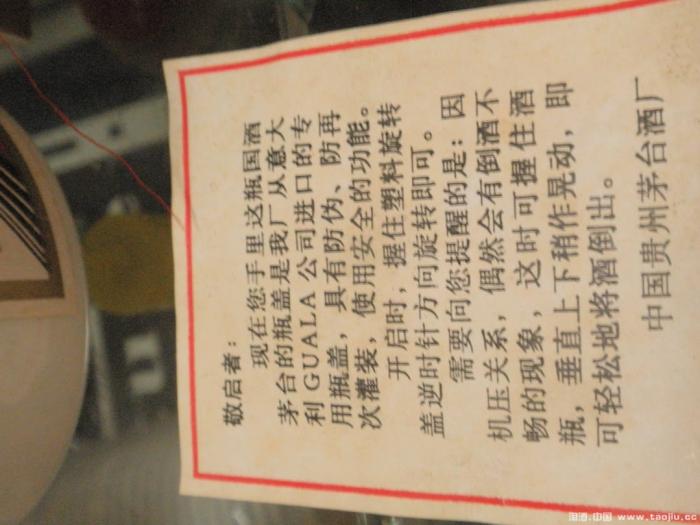 敬启者：
现在您手里这瓶国酒
茅台的瓶盖是我厂从意大
利GUALA公司进口的专
用瓶盖，具有防伪、防再
次灌装，使用安全的功能。
开启时，握住塑料旋转
盖逆时针方向旋转即可。
需要向您提醒的是：因
机压关系，偶然会有倒酒不
畅的现象，这时可握住酒
瓶，垂直上下稍作晃动，即
可轻松地将酒倒出。
中国贵州茅台酒厂
淘酒.中国 www.taojiu.cc